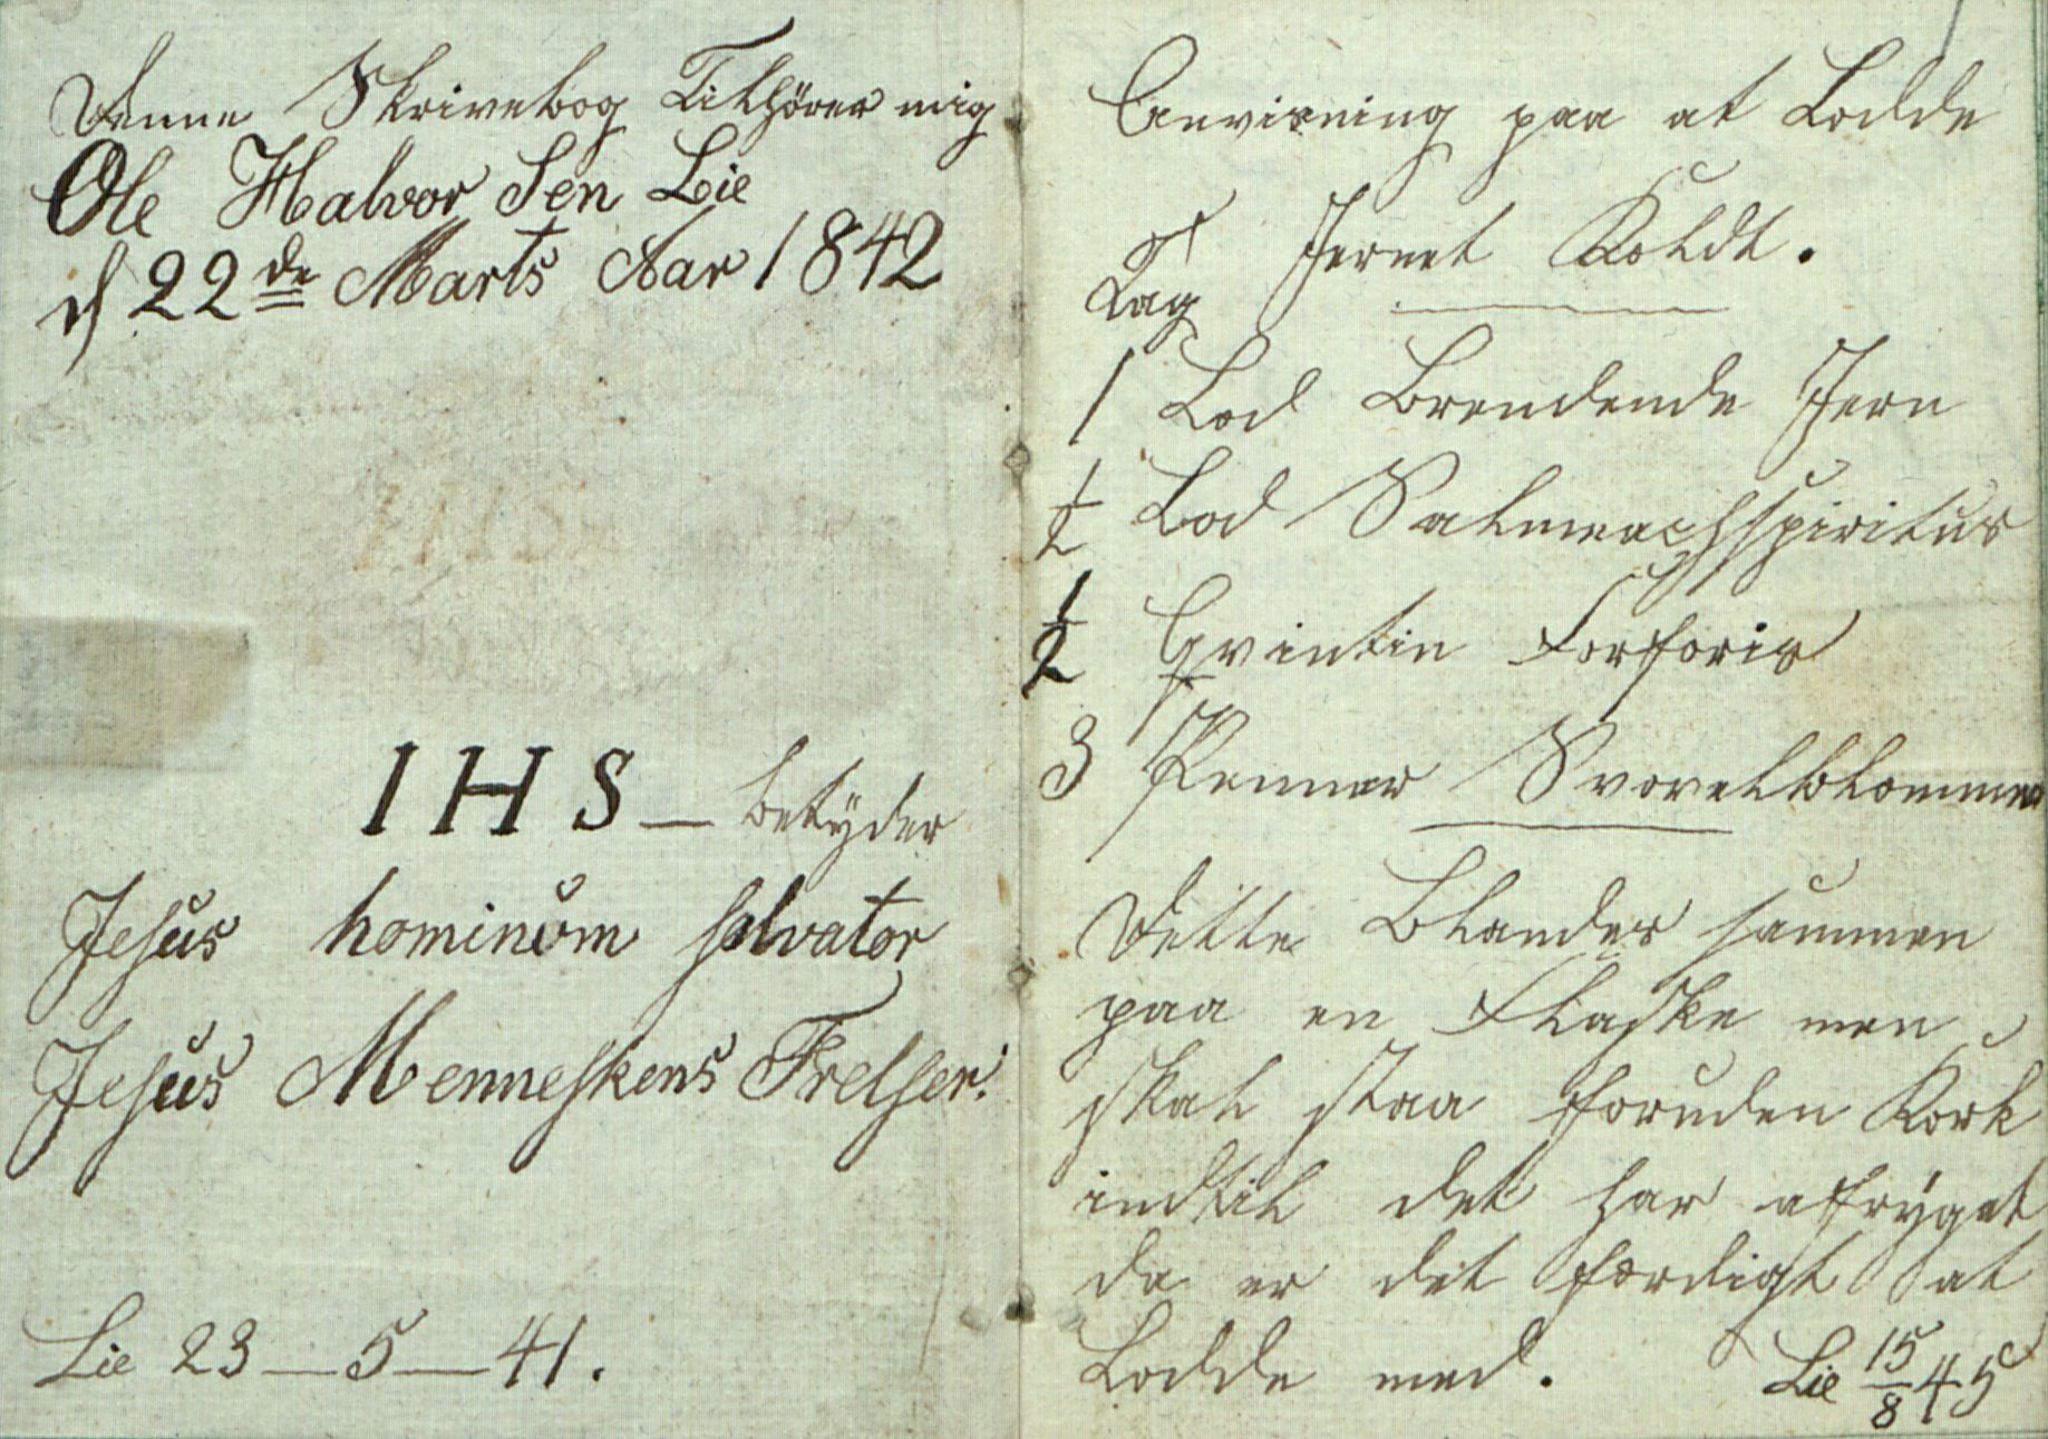 Denne Skrivebog Tilhörer mig
Ole Halvor Sen Lie
d 22de Marts Aar 1842
IHS
IHS — betÿder
Jesus hominum salvator
Jesus Menneskens Frelser.
Lie 23 — 5 — 41.
Anvisning paa at Lodde
Jernet Koldt.
Tag
1 Lod Brendende Jern
1/2 Lod Salmeachspiritus
1/2 Qvintin Forforis
3 Penner Svovelblommer
Dette Blandes sammen
paa en Flaske men
skal staa foruden Kork
indtil det har afrÿget
da er det færdigt at
Lodde med. Lie 15/8 45